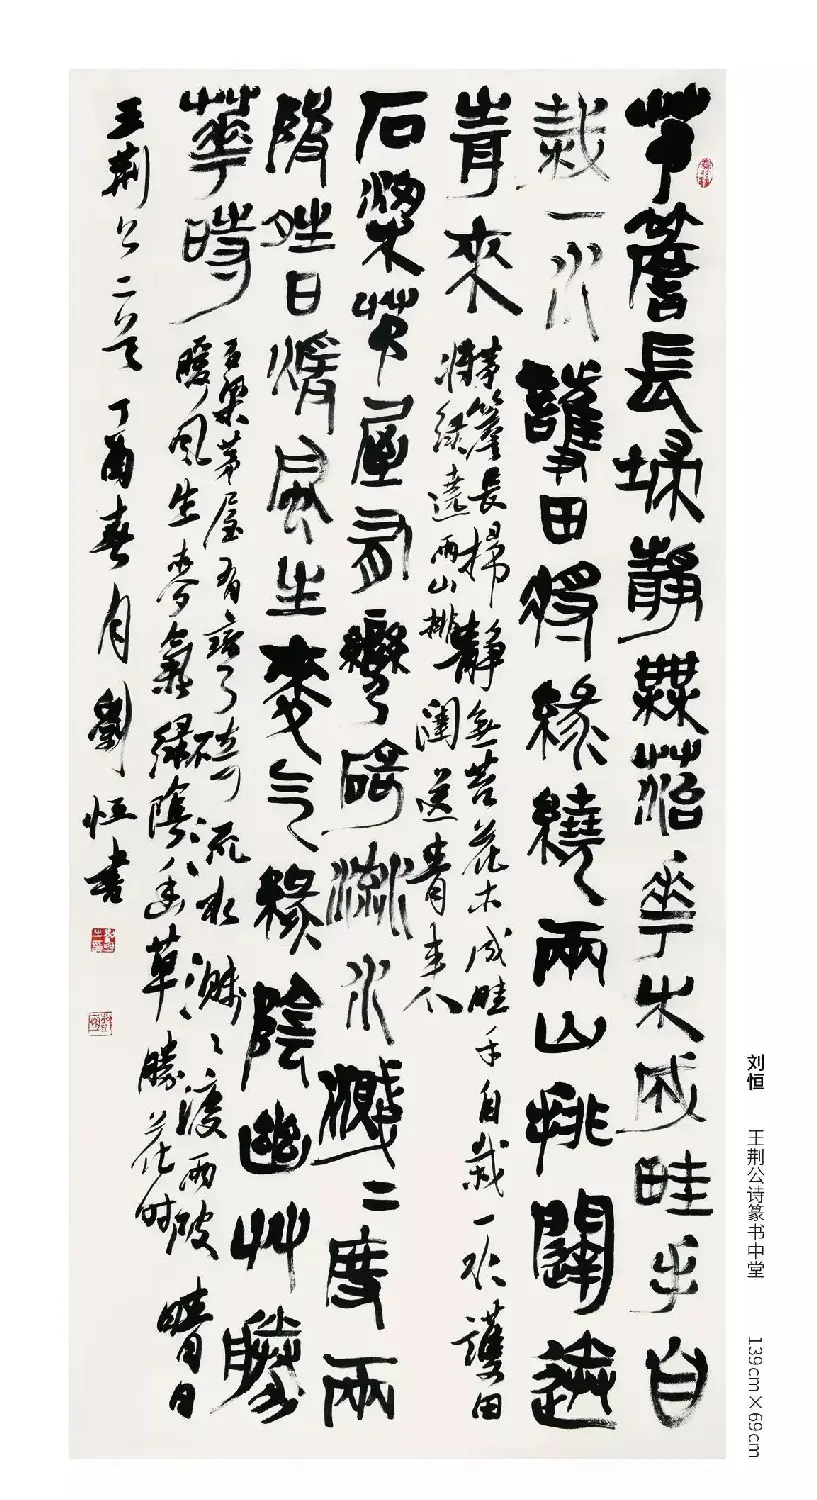 茅簷長埽靜無苔華木成畦手自
栽一水護田將綠繞兩山排闥送
青來
茅簷長掃靜無苔花木成畦手自栽一水護田
將綠遶兩山排闥送青来
石梁茅屋有彎碕流水濺二度兩
陂晴日暖風生麥气綠陰幽艸勝
華時
石梁茅屋有彎碕流水濺濺渡兩陂晴日
暖風生麥氣綠陰幽草勝花时
王荆公二首丁酉春月劉恒書
刘恒 王荆公诗篆书中堂 139cm×69cm